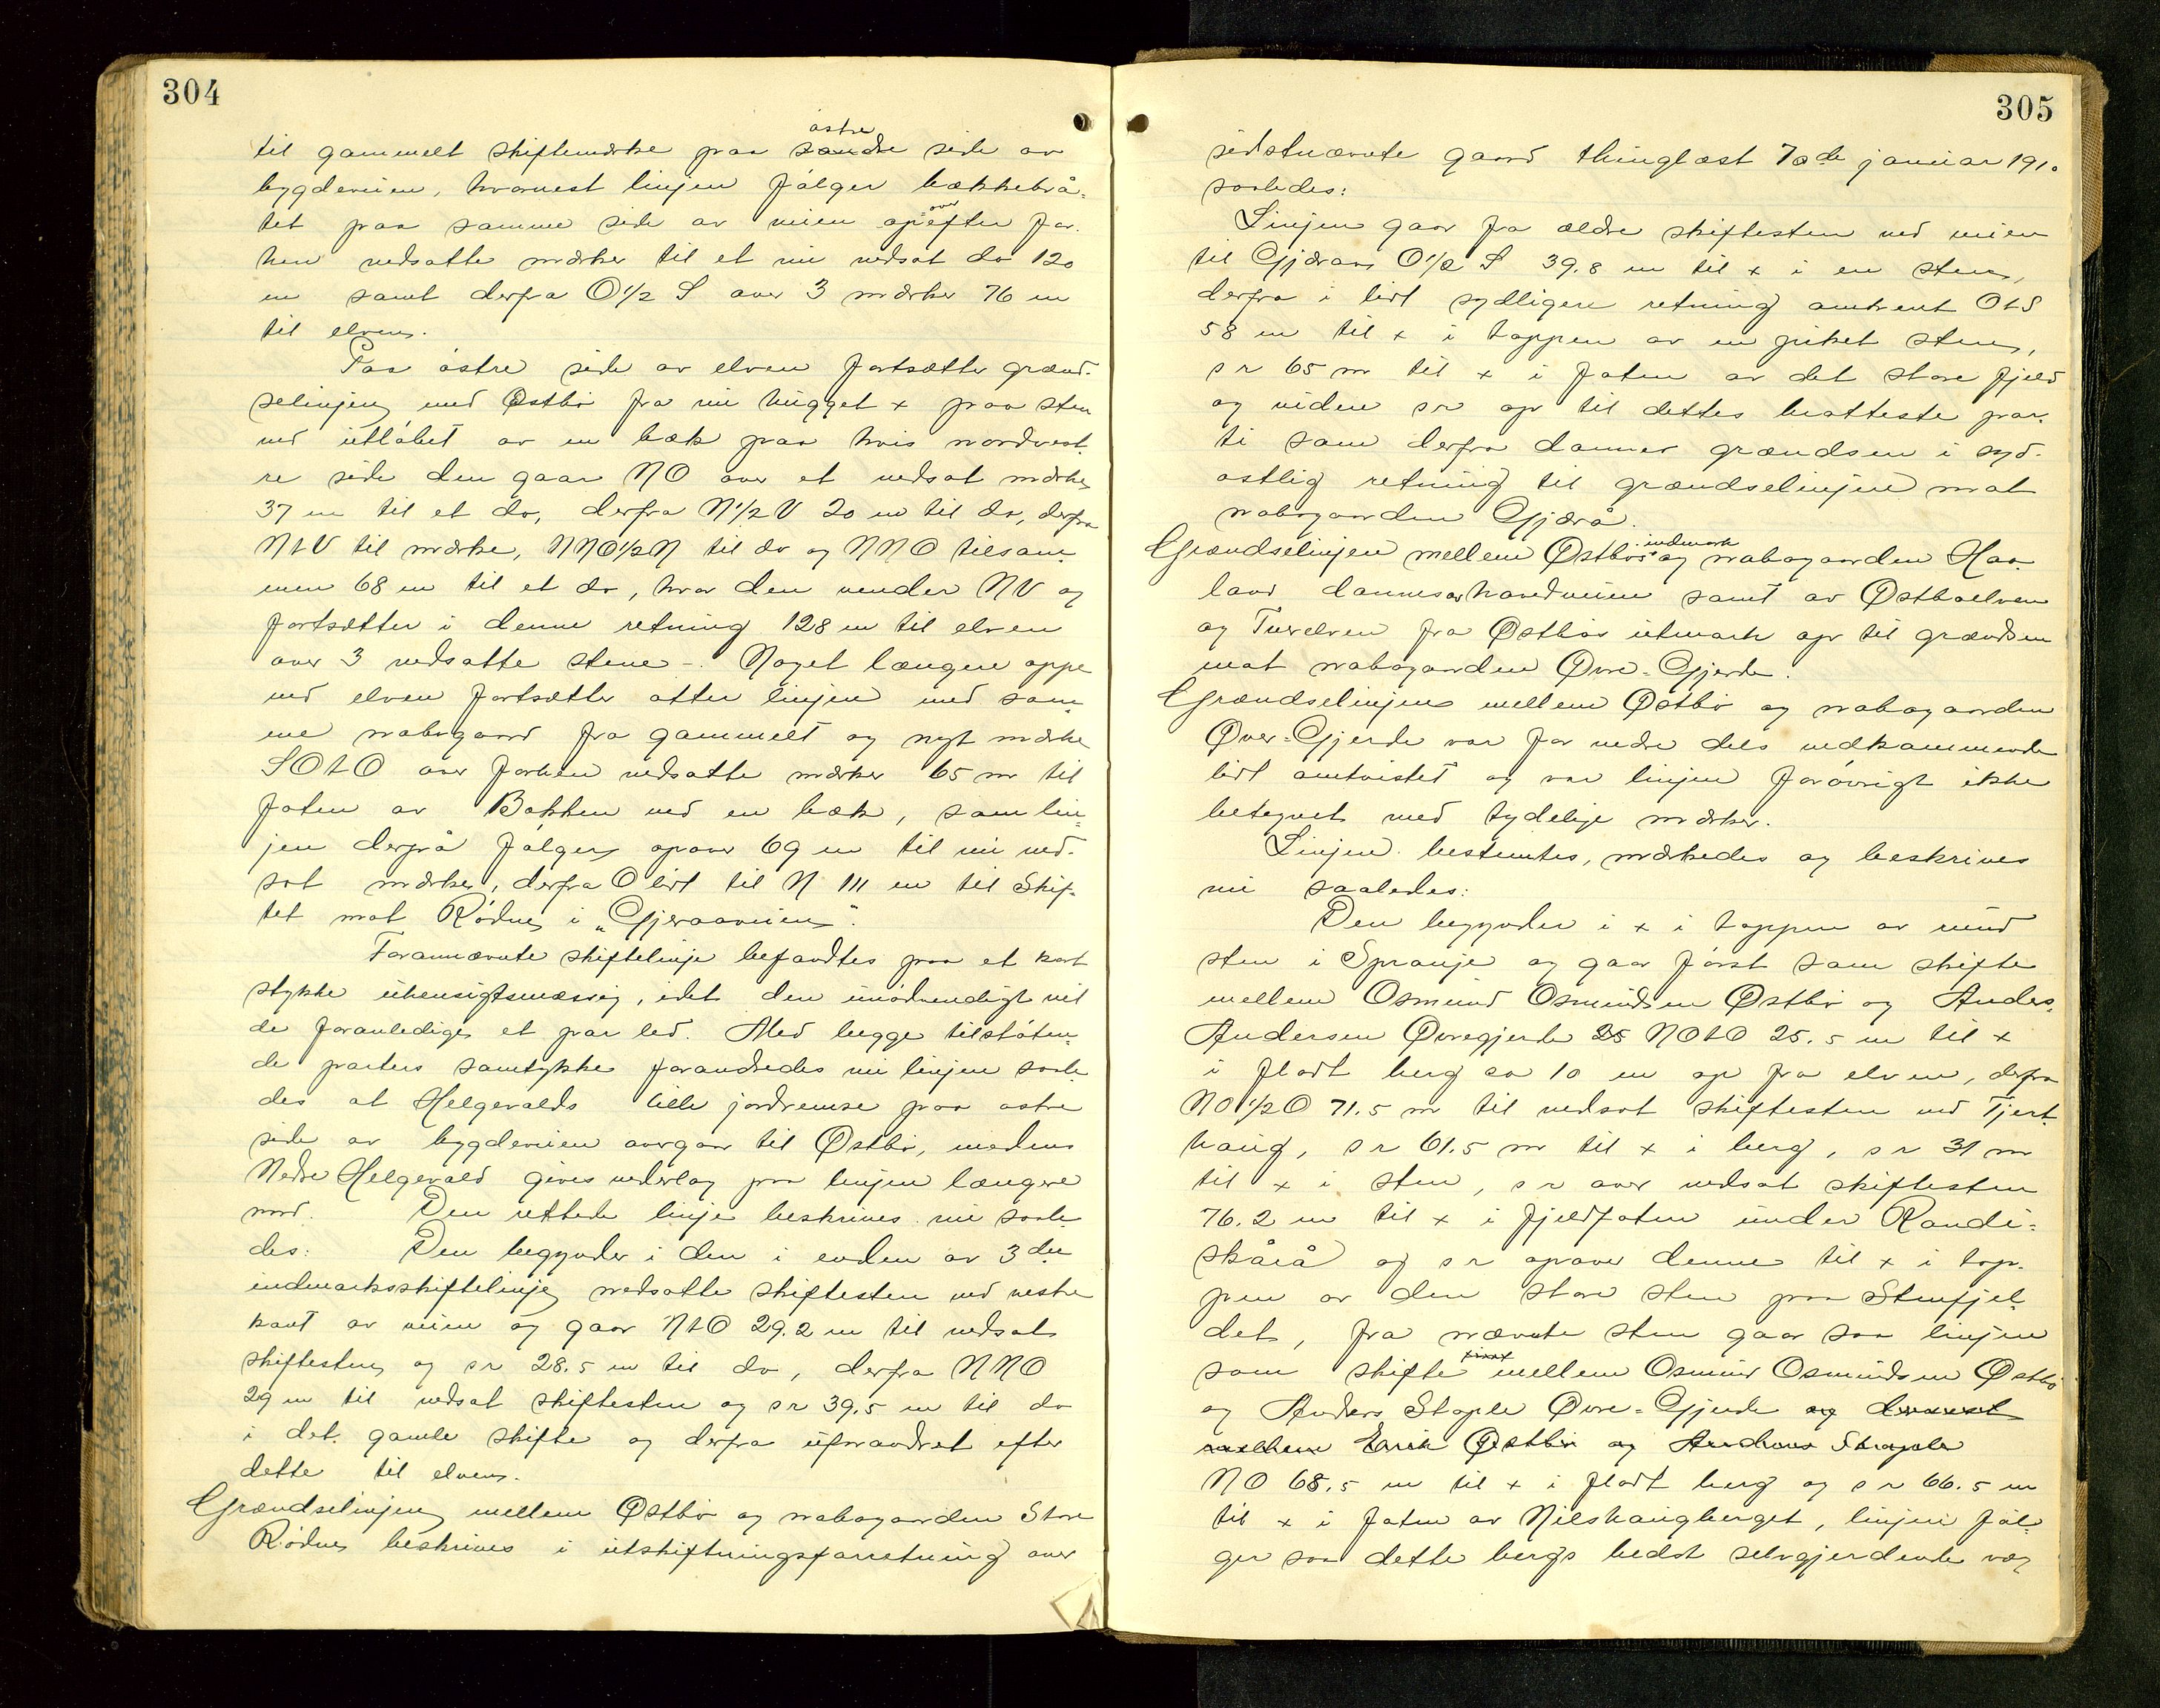 304
til gammelt skiftemærke paa østre søndre side av
bygdeveien, hvornest linjen følger bækkebrå-
tet paa samme side av veien opover efter for-
hen nedsatte mærker til et nu nedsat do 120
m samt derfra O½S over 3 mærker 76 m
til elven.
Paa østre side av elven fortsætter grænd-
selinjen med Østbø fra nu hugget x paa sten
ved utløbet av en bæk paa hvis nordvest-
re side den gaar NO over et nedsat mærke
37 m til et do, derfra N½V 20 m til do, derfra
NtV til mærke, NNO½N til do og NNO tilsam-
men 68 m til et do, hvor den vender NV og
fortsætter i denne retning 128 m til elven
over 3 nedsatte stene -. Noget længere oppe
ved elven fortsætter atter linjen med sam-
me nabogaard fra gammelt og nyt mærke
SOtO over forhen nedsatte mærker 65 m til
foten av Bakken ved en bæk, som lin-
jen derpå følger opover 69 m til nu ned-
sat mærke, derfra O lidt til N 111 m til Skif-
tet mot Rødne i "Gjeraaveien".
Forannævnte skiftelinje befandtes paa et kort
stykke uhensigtsmæssig, idet den unødvendigt vil-
de foranledige et par led. Med begge tilstøten-
de parters samtykke forandredes nu linjen saale-
des at Helgevolds lille jordremse paa østre
side av bygdeveien overgaar til Østbø, medens
Nedre Helgevold gives vederlag paa linjen længere
nord. Den rettede linje beskrives nu saale-
des: Den begynder i den i enden av 3die
indmarksskiftelinje nedsatte skiftesten ved vestre
kant av veien og gaar NtO 29.2 m til nedsat
skiftesten og s r 28.5 m til do, derfra NNO
29 m til nedsat skiftesten og s r 39.5 m til do
i det gamle skifte og derfra uforandret efter
dette til elven.
Grændselinjen mellem Østbø og nabogaarden Store
Rødne beskrives i utskiftningsforretning over
305
sidstnævnte gaard thinglæst 70de januar 1910
saaledes:
Linjen gaar fra ældre skiftesten ved veien
til Gjæraa O½S 39.8 m til x i en sten,
derfra i lidt sydligere retning omtrent OtS
58 m til x i toppen av en piket sten,
s r 65 m til x i foten av det store fjeld
og videre s r op til dettes bratteste par-
ti som derfra danner grændsen i syd-
ostlig retning til grændselinjen mot
nabogaarden Gjærå.
Grændselinjen mellem Østbøs indmark og nabogaarden Haa-
land dannes av hovedveien samt av Østboelven
og Tverelven fra Østbøs utmark op til grændsen
mot nabogaarden Øvre-Gjerde.
Grændselinjen mellem Østbø og nabogaarden
Øver-Gjerde var for nedre dels vedkommende
lidt omtvistet og var linjen forøvrigt ikke
betegnet med tydelige mærker.
Linjen bestemtes, mærkedes og beskrives
nu saaledes:
Den begynder i x i toppen av rund
sten i Spranje og gaar først som skifte
mellem Osmund Osmundsen Østbø og Anders
Andersen Øvregjerde 25 NOtO 25.5 m til x
i fladt berg ca 10 m op fra elven, derfra
NO½O 71.5 m til nedsat skiftesten ved Tjert-
haug, s r 61.5 m til x i berg, s r 31 m
til x i sten, s r over nedsat skiftesten
76.2 m til x i fjeldfoten under Randi-
skårå og s r opover denne til x i top-
pen av den store sten paa Stenfjel-
det, fra nævnte sten gaar saa linjen
som skifte mellem Osmund Osmundsen Østbø
og Anders Stople Øvre-Gjerde og dernæst
mellem Erik Østbø og Andreas Stople
NO 68.5 m til x i fladt berg og s r 66.5 m
til x i foten av Nilshaugberget, linjen føl-
ger saa dette bergs bedst selvgjerdende væg